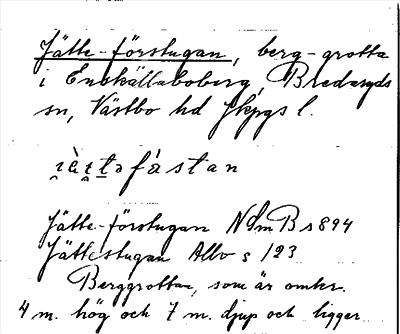 Jätte-förstugan, berg-grotta
i Enekällaboberg, Bredaryds
sn, Västbo hd Jkpgs l.
Jätte-förstugan NSmB s 894
Jättestugan Allv s 123
Berggrottan, som är omkr.
4 m. hög och 7 m. djup och ligger